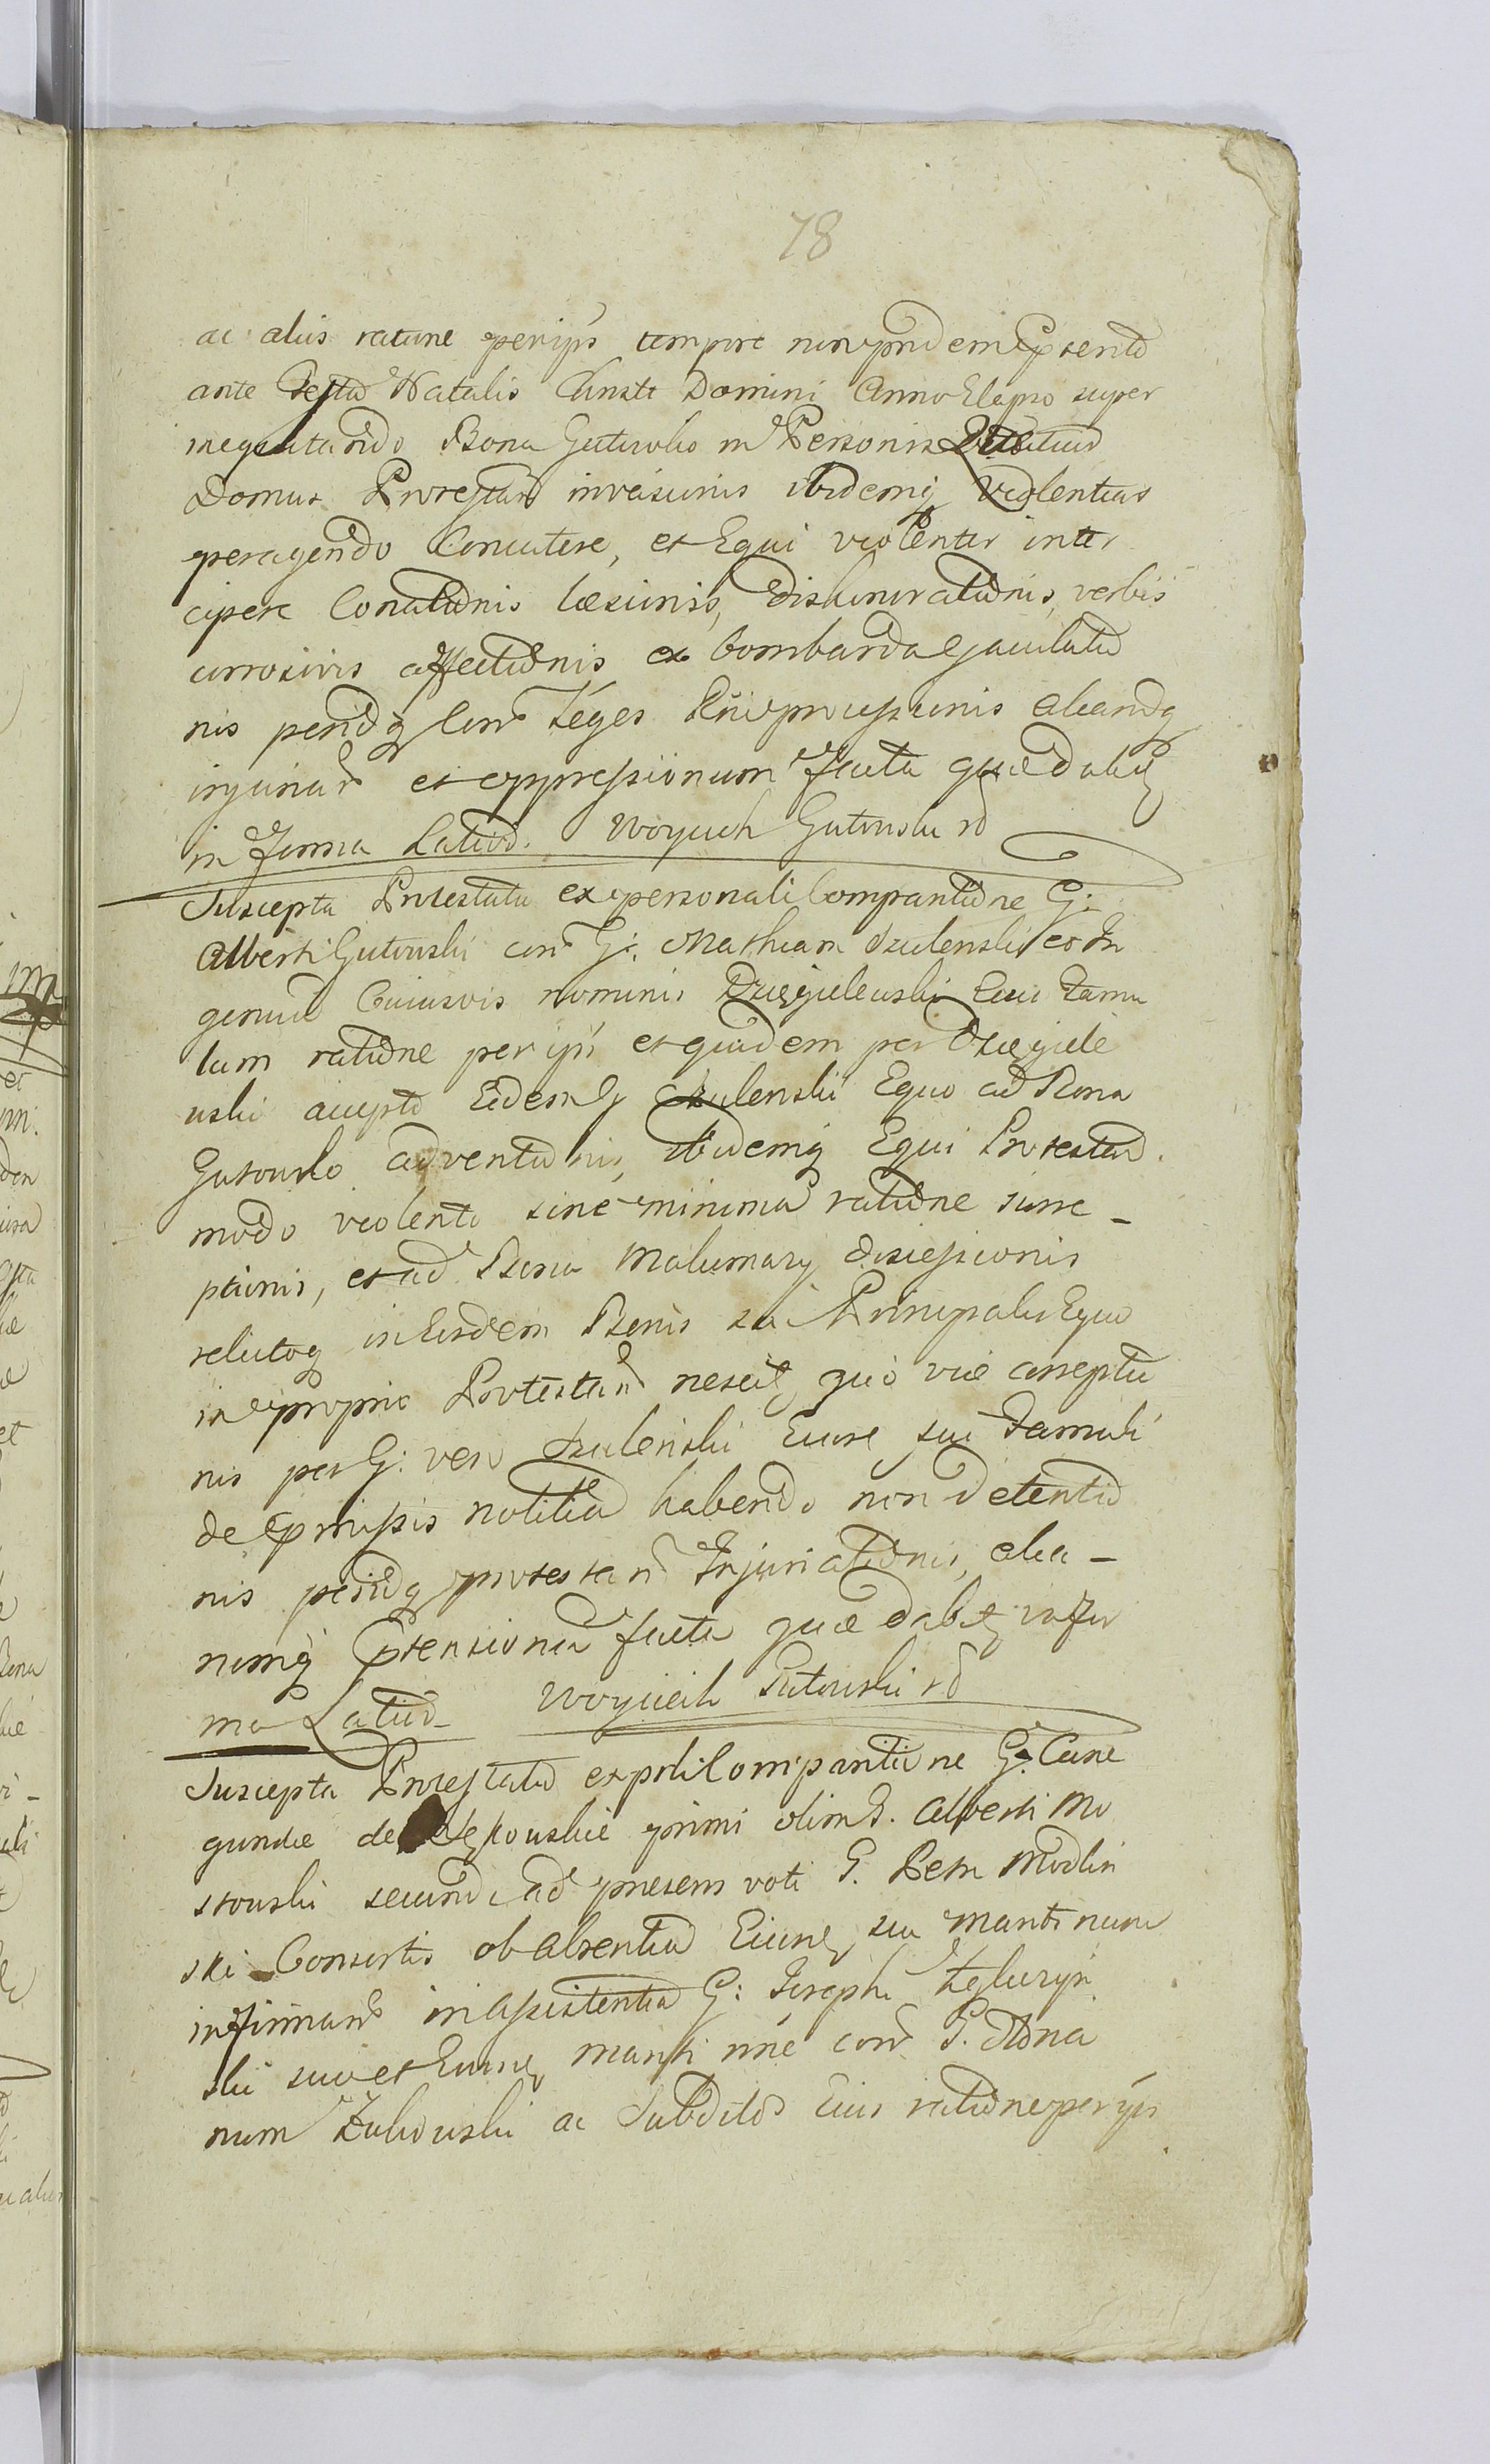 78
ac aliis ratione per ipsos tempore non pridem
ante Festa Natalis Christi Domini Anno Elapso super
inequitando Bona Gutowo in Personis
Domus Protestan invasionis ibidemq violentias
peragendo Concutere, et Equi violenter inter
cipere Conationis læsionis, Dishonorationis, verbis
corrosivis affectionis ex bombarda Ejaculatio
nis perindq Con Leges aliandq
injuriar et oppressionum facta quæ dabit
in Forma Latiori. Woyciech Gutowski rd
Suscepta Protestatio ex personali Comparitione G:
Alberti Gutowski con G: Mathiam Szulenski et In
genuu Cuiusvis nominis Dzięgielewski Eius Famu
lum ratione per ipsi et quidem per Dzięgiele
wski accepto Eidemq Szulenski Equo ad Bona
Gutowo adventionis, ibidemq Equi Protestan.
modo violento sine minima ratione surre_
ptionis, et ad Bona discessionis
relictoq in Eisdem Bonis Principalis Equo
in proprio Protestan nescit, quo viæ arreptio
nis per G: vero Szulenski Eius sui Famuli
de præmissis notitia habendo non detentio
nis perindq protestan Injuriationis, alia_
rumq prætensionu facta quæ dabit in for
ma Latiori_ Woyciech Gutowski rd
Suscepta Protestatio ex pnli Comparitione G. Cune
gundæ de primi olim G. Alberti Mo
stowski secundi ad præsens voti G. Petri Modlin
ski Consortis ob absentia Eiusq sui mariti nunc
infirman in Assistentia G: Joseph
ski suo et Eiusq mariti nne con G. Adna
num Zukowski ac Subditos Eius ratione per ipsos